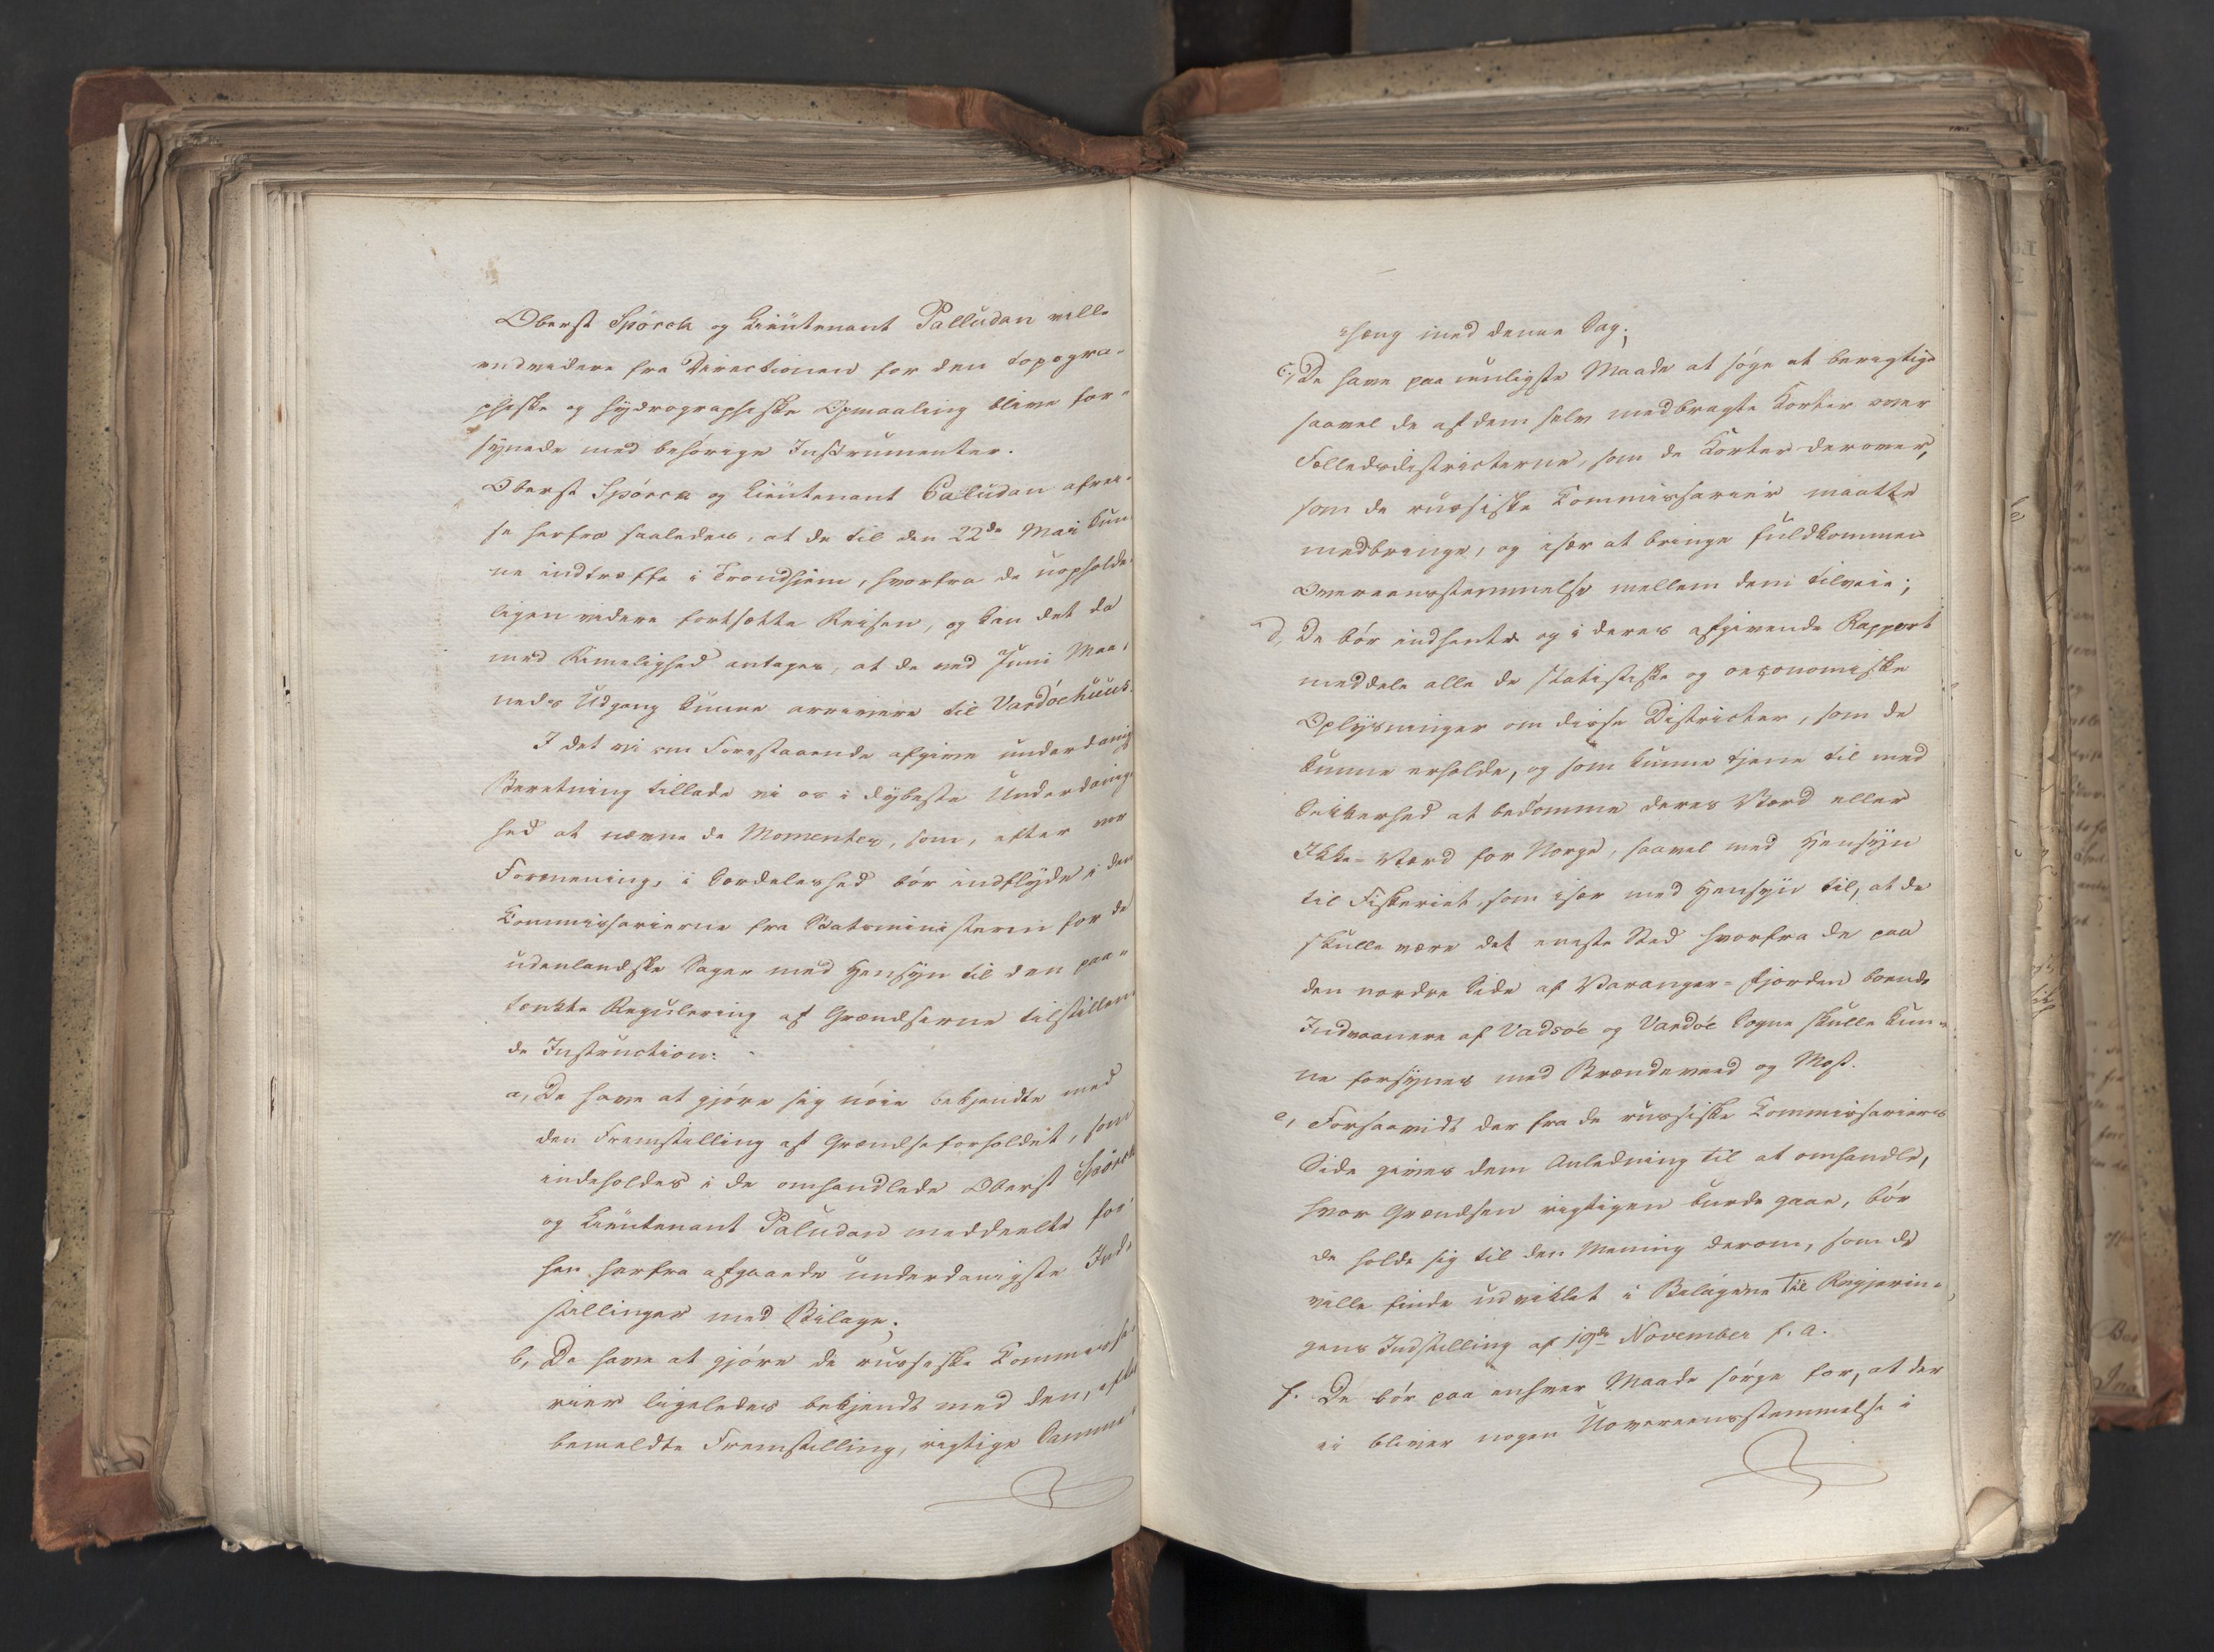 Oberst Spörck og Lieutenant Palludan ville
endvidere fra Directionen for den topogra-
phiske og hydrographiske Opmaaling blive for-
synede med behørige Instrumenter.
Oberst Spörck og Lieutenant Paludan afrei-
se herfra saaledes, at de til den 22de Mai kun-
ne indtræffe i Trondhjem, hvorfra de uopholde-
ligen videre fortsætte Reisen, og kan det da
med Rimelighed antages, at de ved Juni Maa-
neds Udgang kunne arrivere til Vardöehuus.
I det vi om Forestaaende afgive underdanig
Beretning tillade vi os i dybeste Underdanig-
hed at nævne de Momenter, som, efter vor
Formening, i Særdeleshed bör indflyde i den
Commissarierne fra Statsministeren for de
udenlandske Sager med Hensyn til den paa-
tænkte Regulering af Grændserne tilstillen-
de Instruction:
a, De have at gjöre sig nöie bekjendte med
den Fremstilling af Grændseforholdet, som
indeholdes i de omhandlede Oberst Spörck
og Lieutenant Paludan meddeelte for-
hen herfra afgaaede underdanigste Ind-
stillinger med Bilage;
b, De have at gjöre de russiske Commissa-
rier ligeledes bekjendt med den, efter
bemeldte Fremstilling, rigtige Sammen-
hæng med denne Sag;
c, De have paa muligste Maade at söge at berigtige
saavel de af dem selv medbragte Korter over
Fælledsdistricterne, som de Korter derover,
som de russiske Commissarier maatte
medbringe, og især at bringe fuldkommen
Overeensstemmelse mellem dem tilveie;
d, De bör indhente og i deres afgivende Rapport
meddele alle de statistiske og oeconomiske
Oplysninger om disse Districter, som de
kunne erholde, og som kunne tjene til med
Sikkerhed at bedömme deres Værd eller
Ikke-Værd for Norge, saavel med Hensyn
til Fiskeriet, som især med Hensyn til, at de
skulle være det eneste Sted hvorfra de paa
den nordre Side af Varanger-fjorden boende
Indvaanere af Vadsöe og Vardöe Sogne skulle kun-
ne forsynes med Brændeveed og Mos.
e, Forsaavidt der fra de russiske Commissariers
Side gives dem Anledning til at omhandle,
hvor Grændsen rigtigen burde gaae, bör
de holde sig til den Mening derom, som de
ville finde udviklet i Bilagene til Regjerin-
gens Indstilling af 19de November f. A.
f. De bör paa enhver Maade sörge for, at der
ei bliver nogen Uovereensstemmelse i